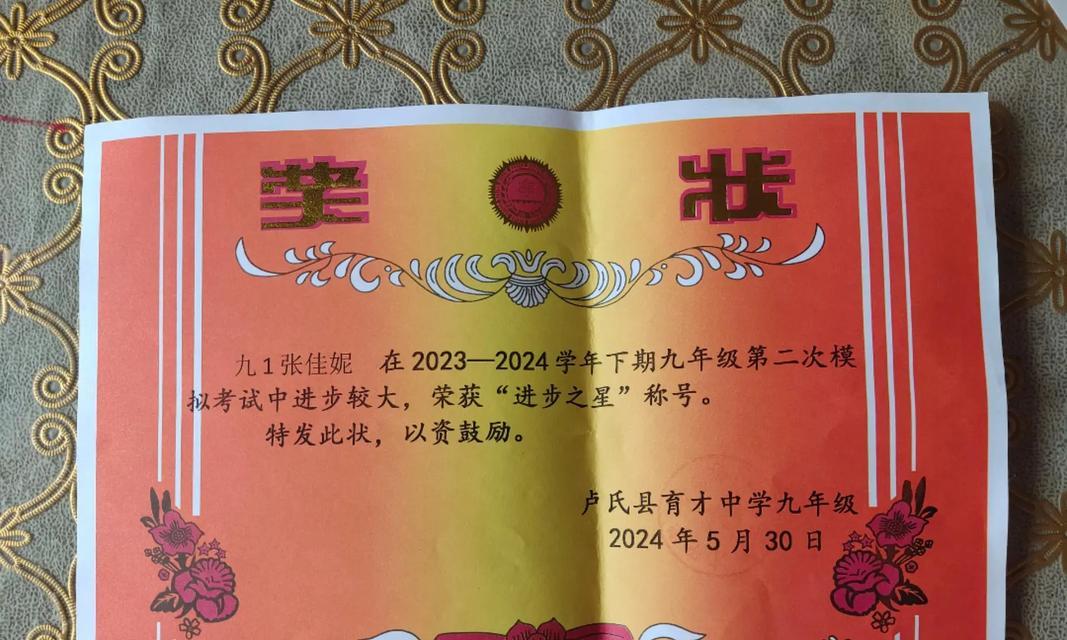 奖 状
九1张佳妮 在2023—2024学年下期九年级第二次模
拟考试中进步较大，荣获“进步之星”称号。
特发此状，以资鼓励。
卢氏县育才中学九年级
2024年5月30日